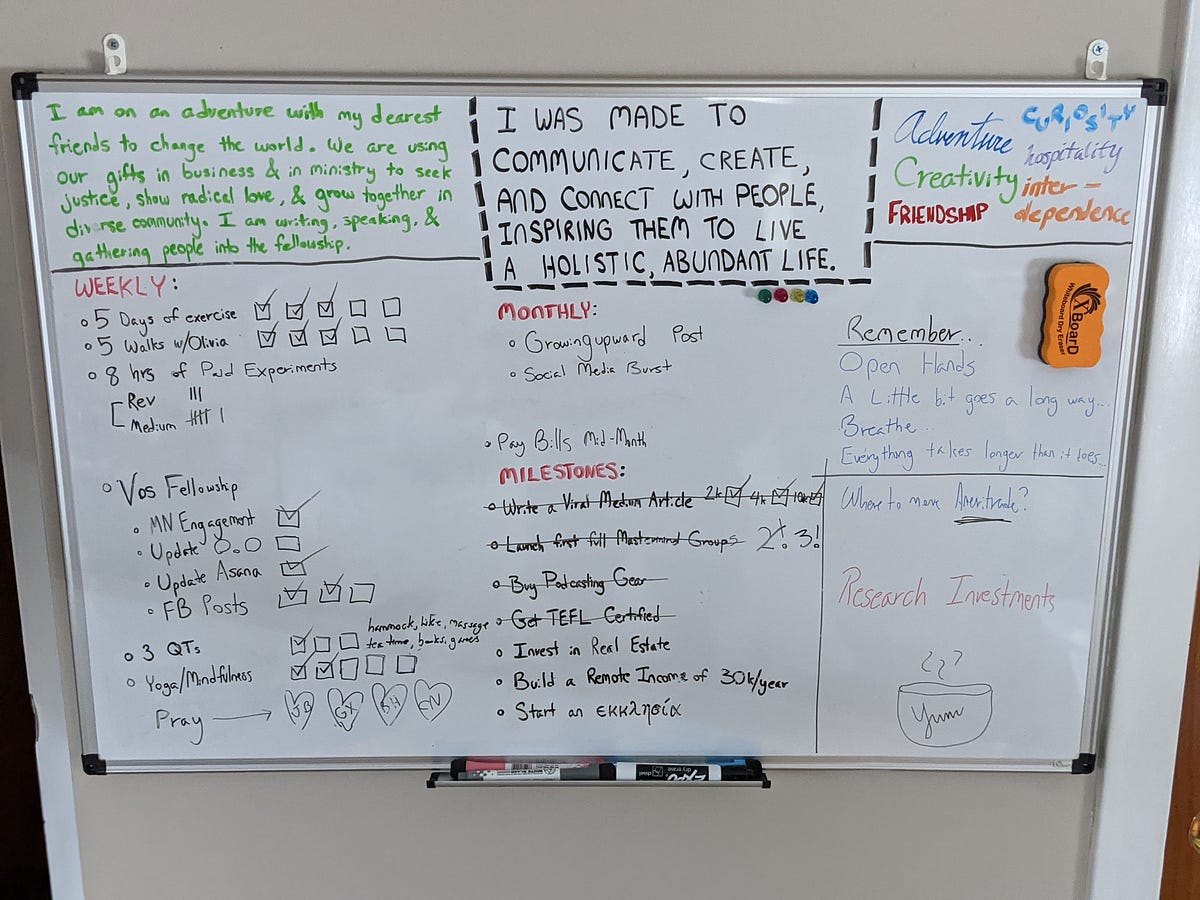 I am on an adventure with my dearest
friends to change the world. We are using
our gifts in business & in ministry to seek
justice, show radical love, & grow together in
diverse community. I am writing, speaking, &
gathering people into the fellowship.
I WAS MADE TO
COMMUNICATE, CREATE,
AND CONNECT WITH PEOPLE,
INSPIRING THEM TO LIVE
A HOLISTIC, ABUNDANT LIFE.
Adventure
CURIOSITY
hospitality
Creativity
inter-
dependence
FRIENDSHIP
WEEKLY:
5 Days of exercise
5 Walks w/Olivia
8 hrs of Paid Experiments
Rev III
Medium
Vos Fellowship
MN Engagement
Update O.O
Update Asana
FB Posts
3 QTs
hammock, bike, massage
tea time, books, games
Yoga/Mindfulness
Pray
JB
GX
BH
MONTHLY:
Growingupward Post
Social Media Burst
Pay Bills Mid-Month
MILESTONES:
Write a Viral Medium Article 2k 4k 10k
Launch first full Mastermind Groups 2! 3!
Buy Podcasting Gear
Get TEFL Certified
Invest in Real Estate
Build a Remote Income of 30k/year
Start an εκκλησία
Remember...
Open Hands
A Little bit goes a long way...
Breathe...
Everything takes longer than it does...
Where to move Ameritrade?
Research Investments
Yum
XBoarD
Whiteboard Dry Eraser
EXPO
dry erase